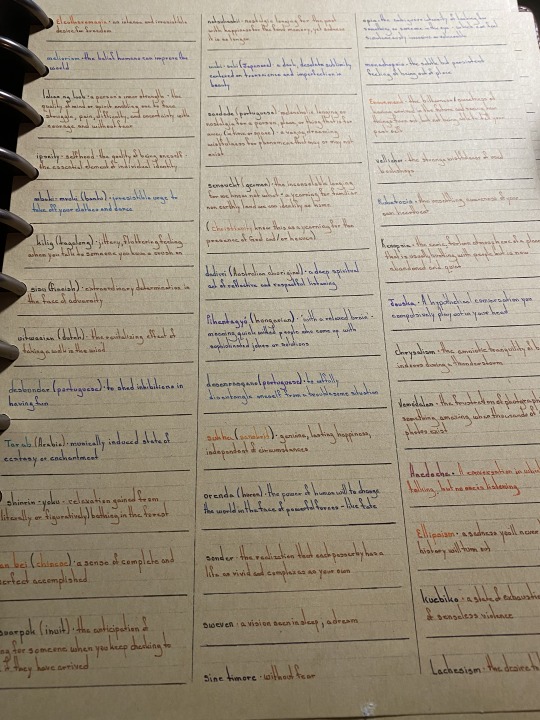 Eleutheromania - an intense and irresistible
desire for freedom
meliorism - the belief humans can improve the
world
a person's inner strength - the
quality of mind or spirit enabling one to face
struggle, pain, difficulty, and uncertainty with
courage and without fear
ipseity - selfhood - the quality of being oneself -
the essential element of individual identity
mbuki-mvuki (bantu) - irresistible urge to
take off your clothes and dance
kilig (tagalog) - jittery, fluttering feeling
when you talk to someone you have a crush on
sisu (finnish) - extraordinary determination in
the face of adversity
uitwaaien (dutch) - the revitalizing effect of
taking a walk in the wind
desbundar (portuguese) - to shed inhibitions in
having fun
Tarab (Arabic) - musically induced state of
ecstasy or enchantment
shinrin-yoku - relaxation gained from
(literally or figuratively) bathing in the forest
an bei (chinese) - a sense of complete and
perfect accomplished
(inuit) - the anticipation of
for someone when you keep checking to
if they have arrived
nostalgic longing for the past
wabi-sabi (japanese) - a dark, desolate sublimity
centered on transience and imperfection in
beauty
saudade (portuguese) - melancholic longing or
nostalgia for a person, place, or thing that is far
away - a vague, dreaming
wistfulness for phenomena that may or may not
exist
sehnsucht (german) - the inconsolable longing
for we know not what - a yearning for a familiar
non earthly land we can identify as home
(Christianity knew this as yearning for the
presence of God and/or heaven)
dadirri (Australian aboriginal) - a deep, spiritual
act of reflective and respectful listening
Pihentagyú (hungarian) - with a relaxed brain -
meaning quick witted people who come up with
sophisticated jokes or solutions
desenrascanço (portuguese) - to artfully
disentangle oneself from a troublesome situation
sukha (sanskrit) - genuine, lasting happiness,
independent of circumstances
orenda (huron) - the power of human will to change
the world in the face of powerful forces - like fate
sonder - the realization that each passerby has a
life as vivid and complex as your own
sweven - a vision seen in sleep, a dream
sine timore - without fear
monachopsis - the subtle but persistent
feeling of being out of place
vellichor - the strange wistfulness of used
bookshops
Rubatosis - the unsettling awareness of your
own heartbeat
Kenopsia - the eerie, forlorn atmosphere of a place
that is usually bustling with people but is now
abandoned and quiet
Jouska - A hypothetical conversation you
compulsively play out in your head
Chrysalism - the amniotic tranquility of
indoors during a thunderstorm
Vemödalen - the frustration of photograph
something amazing when thousands of
photos exist
Anecdoche - A conversation in which
talking, but no one is listening
Ellipsism - a sadness you'll never
history will turn out
Kuebiko - a state of exhaustion
of senseless violence
Lachesism - the desire